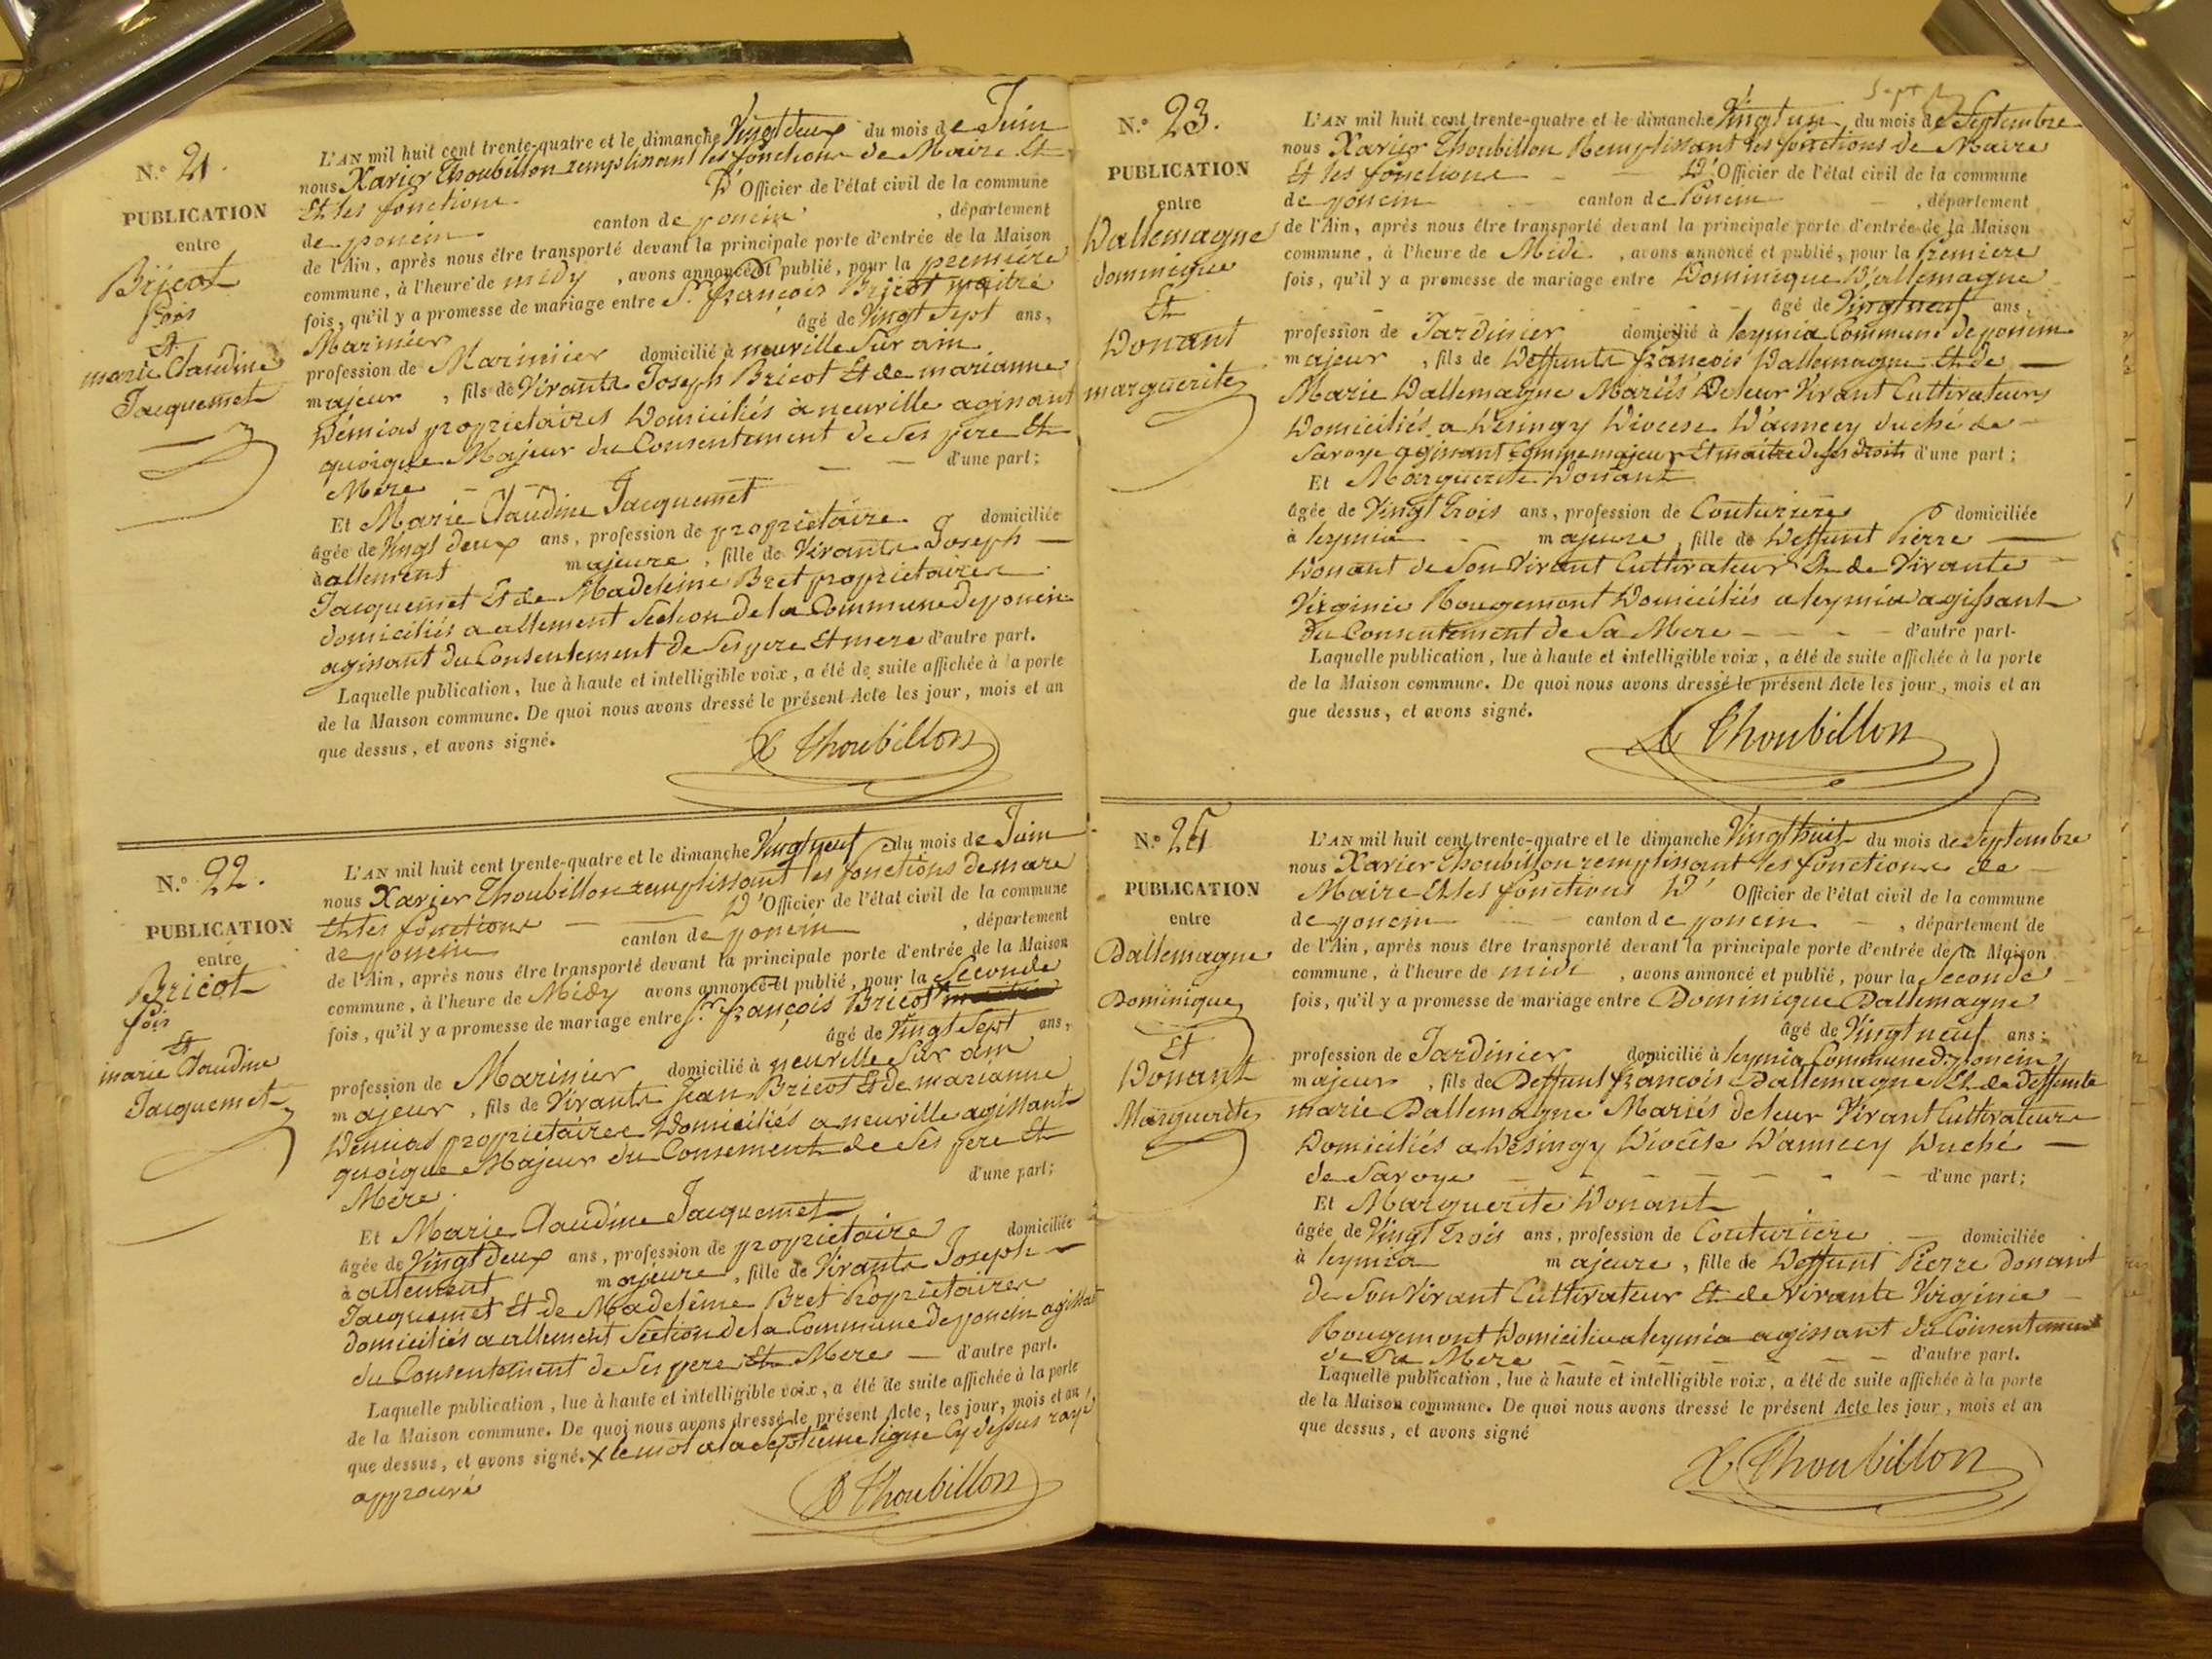 N.° 21.
PUBLICATION
entre
Bricot
fois
Et
marie Claudine
Jacquemet
L'AN mil huit cent trente-quatre et le dimanche Vingt deux du mois de Juin
nous Xavier Thoubillon remplissant les fonctions de Maire Et
Et les fonctions D' Officier de l'état civil de la commune
de poncin canton de poncin , département
de l'Ain, après nous être transporté devant la principale porte d'entrée de la Maison
commune, à l'heure de midy , avons annoncé et publié, pour la première
fois, qu'il y a promesse de mariage entre Sr. françois Bricot maitre
Marinier âgé de Vingt Sept ans,
profession de Marinier domicilié à neuville Sur ain
majeur , fils de Vivants Joseph Bricot Et de marianne
Démias propriétaires Domiciliés à neuville agissant
quoique Majeur du Consentement de Ses pere Et
Mere — — d'une part;
Et Marie Claudine Jacquemet
âgée de Vingt deux ans, profession de propriétaire domiciliée
à allement majeure , fille de Vivants Joseph —
Jacquemet Et de Madeleine Bret propriétaires
domiciliés a allement Section de la Commune de poncin
agissant du Consentement de Ses pere Et mere d'autre part.
Laquelle publication, lue à haute et intelligible voix, a été de suite affichée à la porte
de la Maison commune. De quoi nous avons dressé le présent Acte les jour, mois et an
que dessus, et avons signé.
X Thoubillon
N.° 22.
PUBLICATION
entre
Bricot
fois
Et
marie Claudine
Jacquemet
L'AN mil huit cent trente-quatre et le dimanche Vingt neuf du mois de Juin
nous Xavier Thoubillon remplissant les fonctions de mare
Et les fonctions — D' Officier de l'état civil de la commune
de poncin canton de poncin , département
de l'Ain, après nous être transporté devant la principale porte d'entrée de la Maison
commune, à l'heure de Midy avons annoncé et publié, pour la Seconde
fois, qu'il y a promesse de mariage entre Sr. françois Bricot
âgé de Vingt Sept ans,
profession de Marinier domicilié à neuville Sur ain
majeur , fils de Vivants Jean Bricot Et de marianne
Démias propriétaires Domiciliés a neuville agissant
quoique Majeur du Consement de Ses pere Et
Mere. d'une part;
Et Marie Claudine Jacquemet
âgée de Vingt deux ans, profession de propriétaire domiciliée
à allement majeure , fille de Vivants Joseph —
Jacquemet Et de Madeleine Bret Propriétaires
domiciliés a allement Section de la Commune de poncin agissant
du Consentement de Ses pere Et Mere — d'autre part.
Laquelle publication, lue à haute et intelligible voix, a été de suite affichée à la porte
de la Maison commune. De quoi nous avons dressé le présent Acte, les jour, mois et an
que dessus, et avons signé. X le mot a la Septième ligne Cy dessus rayé,
approuvé
X Thoubillon
N.° 23.
PUBLICATION
entre
Dallemagne
dominique
Et
Donant
marguerite
L'AN mil huit cent trente-quatre et le dimanche Vingt un du mois de Septembre
nous Xavier Thoubillon Remplissant les fonctions de Maire
Et les fonctions D' Officier de l'état civil de la commune
de poncin canton de Poncin , département
de l'Ain, après nous être transporté devant la principale porte d'entrée de la Maison
commune, à l'heure de Midi , avons annoncé et publié, pour la Premiere
fois, qu'il y a promesse de mariage entre Dominique Dallemagne
âgé de Vingt neuf ans,
profession de Jardinier domicilié à leymia Commune de poncin
majeur , fils de Deffunts françois Dallemagne Et de —
Marie Dallemagne Mariés De leur Vivant Cultivateurs
Domiciliés a Desingy Diocese D'annecy duché de
Savoye agissant Comme majeur Et maitre de ses droits d'une part;
Et Marguerite Donant
âgée de Vingt Trois ans, profession de Couturiere domiciliée
à leymia majeure , fille de Deffunt Pierre —
Donant de Son Vivant Cultivateur Et de Vivante
Virginie Rougemont Domiciliés a leymia agissant
Du Consentement de Sa Mere — d'autre part.
Laquelle publication, lue à haute et intelligible voix, a été de suite affichée à la porte
de la Maison commune. De quoi nous avons dressé le présent Acte les jour, mois et an
que dessus, et avons signé.
X Thoubillon
N.° 24
PUBLICATION
entre
Dallemagne
Dominique
Et
Donant
Marguerite
L'AN mil huit cent trente-quatre et le dimanche Vingt huit du mois de Septembre
nous Xavier Thoubillon remplissant les fonctions de
Maire Et les fonctions D' Officier de l'état civil de la commune
de poncin canton de poncin , département de
de l'Ain, après nous être transporté devant la principale porte d'entrée de la Maison
commune, à l'heure de midi , avons annoncé et publié, pour la Seconde
fois, qu'il y a promesse de mariage entre Dominique Dallemagne
âgé de Vingt neuf ans;
profession de Jardinier domicilié à leymia Commune de poncin
majeur , fils de Deffunt françois Dallemagne Et de Deffunte
marie Dallemagne Mariés de leur Vivant Cultivateurs
Domiciliés a Desingy Diocèse D'annecy Duché —
de Savoye — d'une part;
Et Marguerite Donant
âgée de Vingt Trois ans, profession de Couturiere — domiciliée
à leymia majeure , fille de Deffunt Pierre Donant
de Son Vivant Cultivateur Et de Vivante Virginie
Rougemont Domiciliée a leymia agissant du Consentement
de Sa Mere — d'autre part.
Laquelle publication, lue à haute et intelligible voix, a été de suite affichée à la porte
de la Maison commune. De quoi nous avons dressé le présent Acte les jour, mois et an
que dessus, et avons signé
X Thoubillon